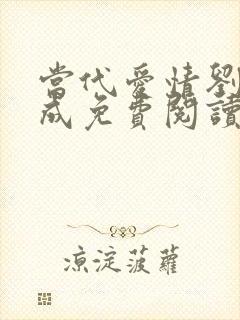 當代愛情劉
成免費閱讀
涼淀菠蘿